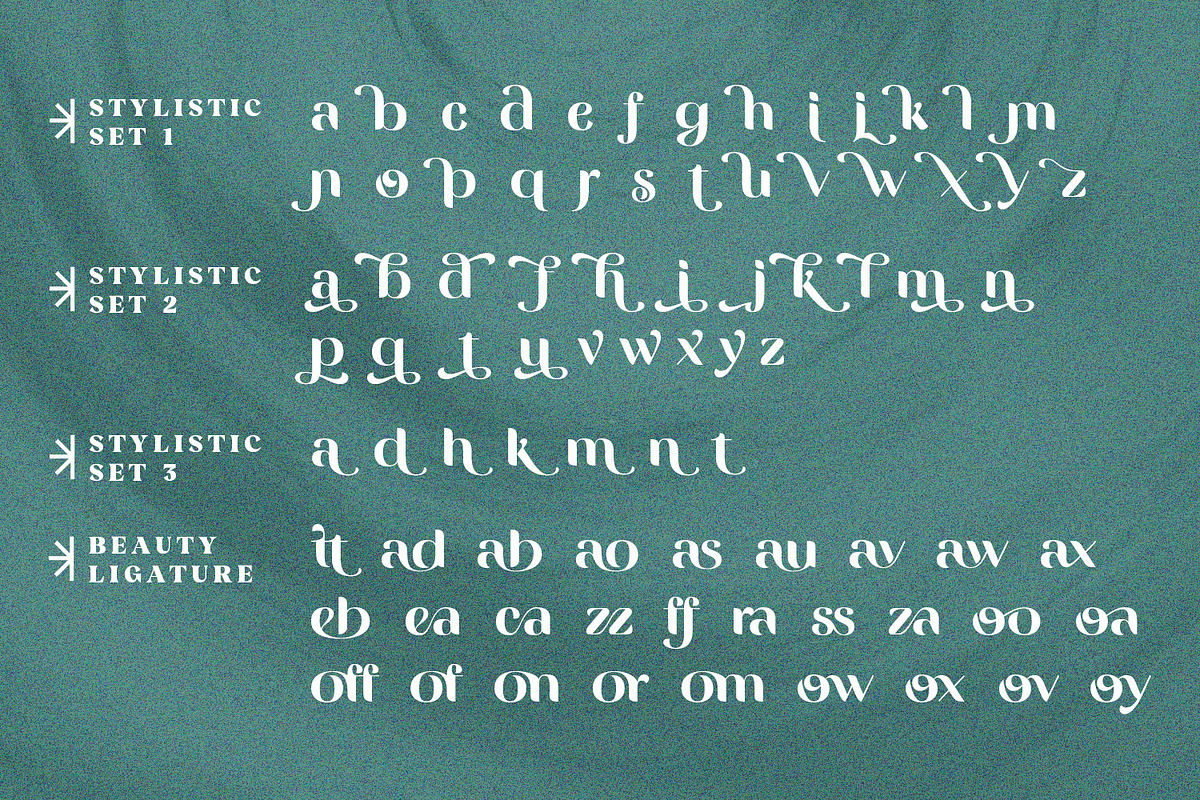 STYLISTIC SET 1
a b c d e f g h i j k l m
n o p q r s t u v w x y z
STYLISTIC SET 2
a b d f h i j k l m n
p q t u v w x y z
STYLISTIC SET 3
a d h k m n t
BEAUTY LIGATURE
tt ad ab ao as au av aw ax
eb ea ca zz ff ra ss za oo oa
off of on or om ow ox ov oy